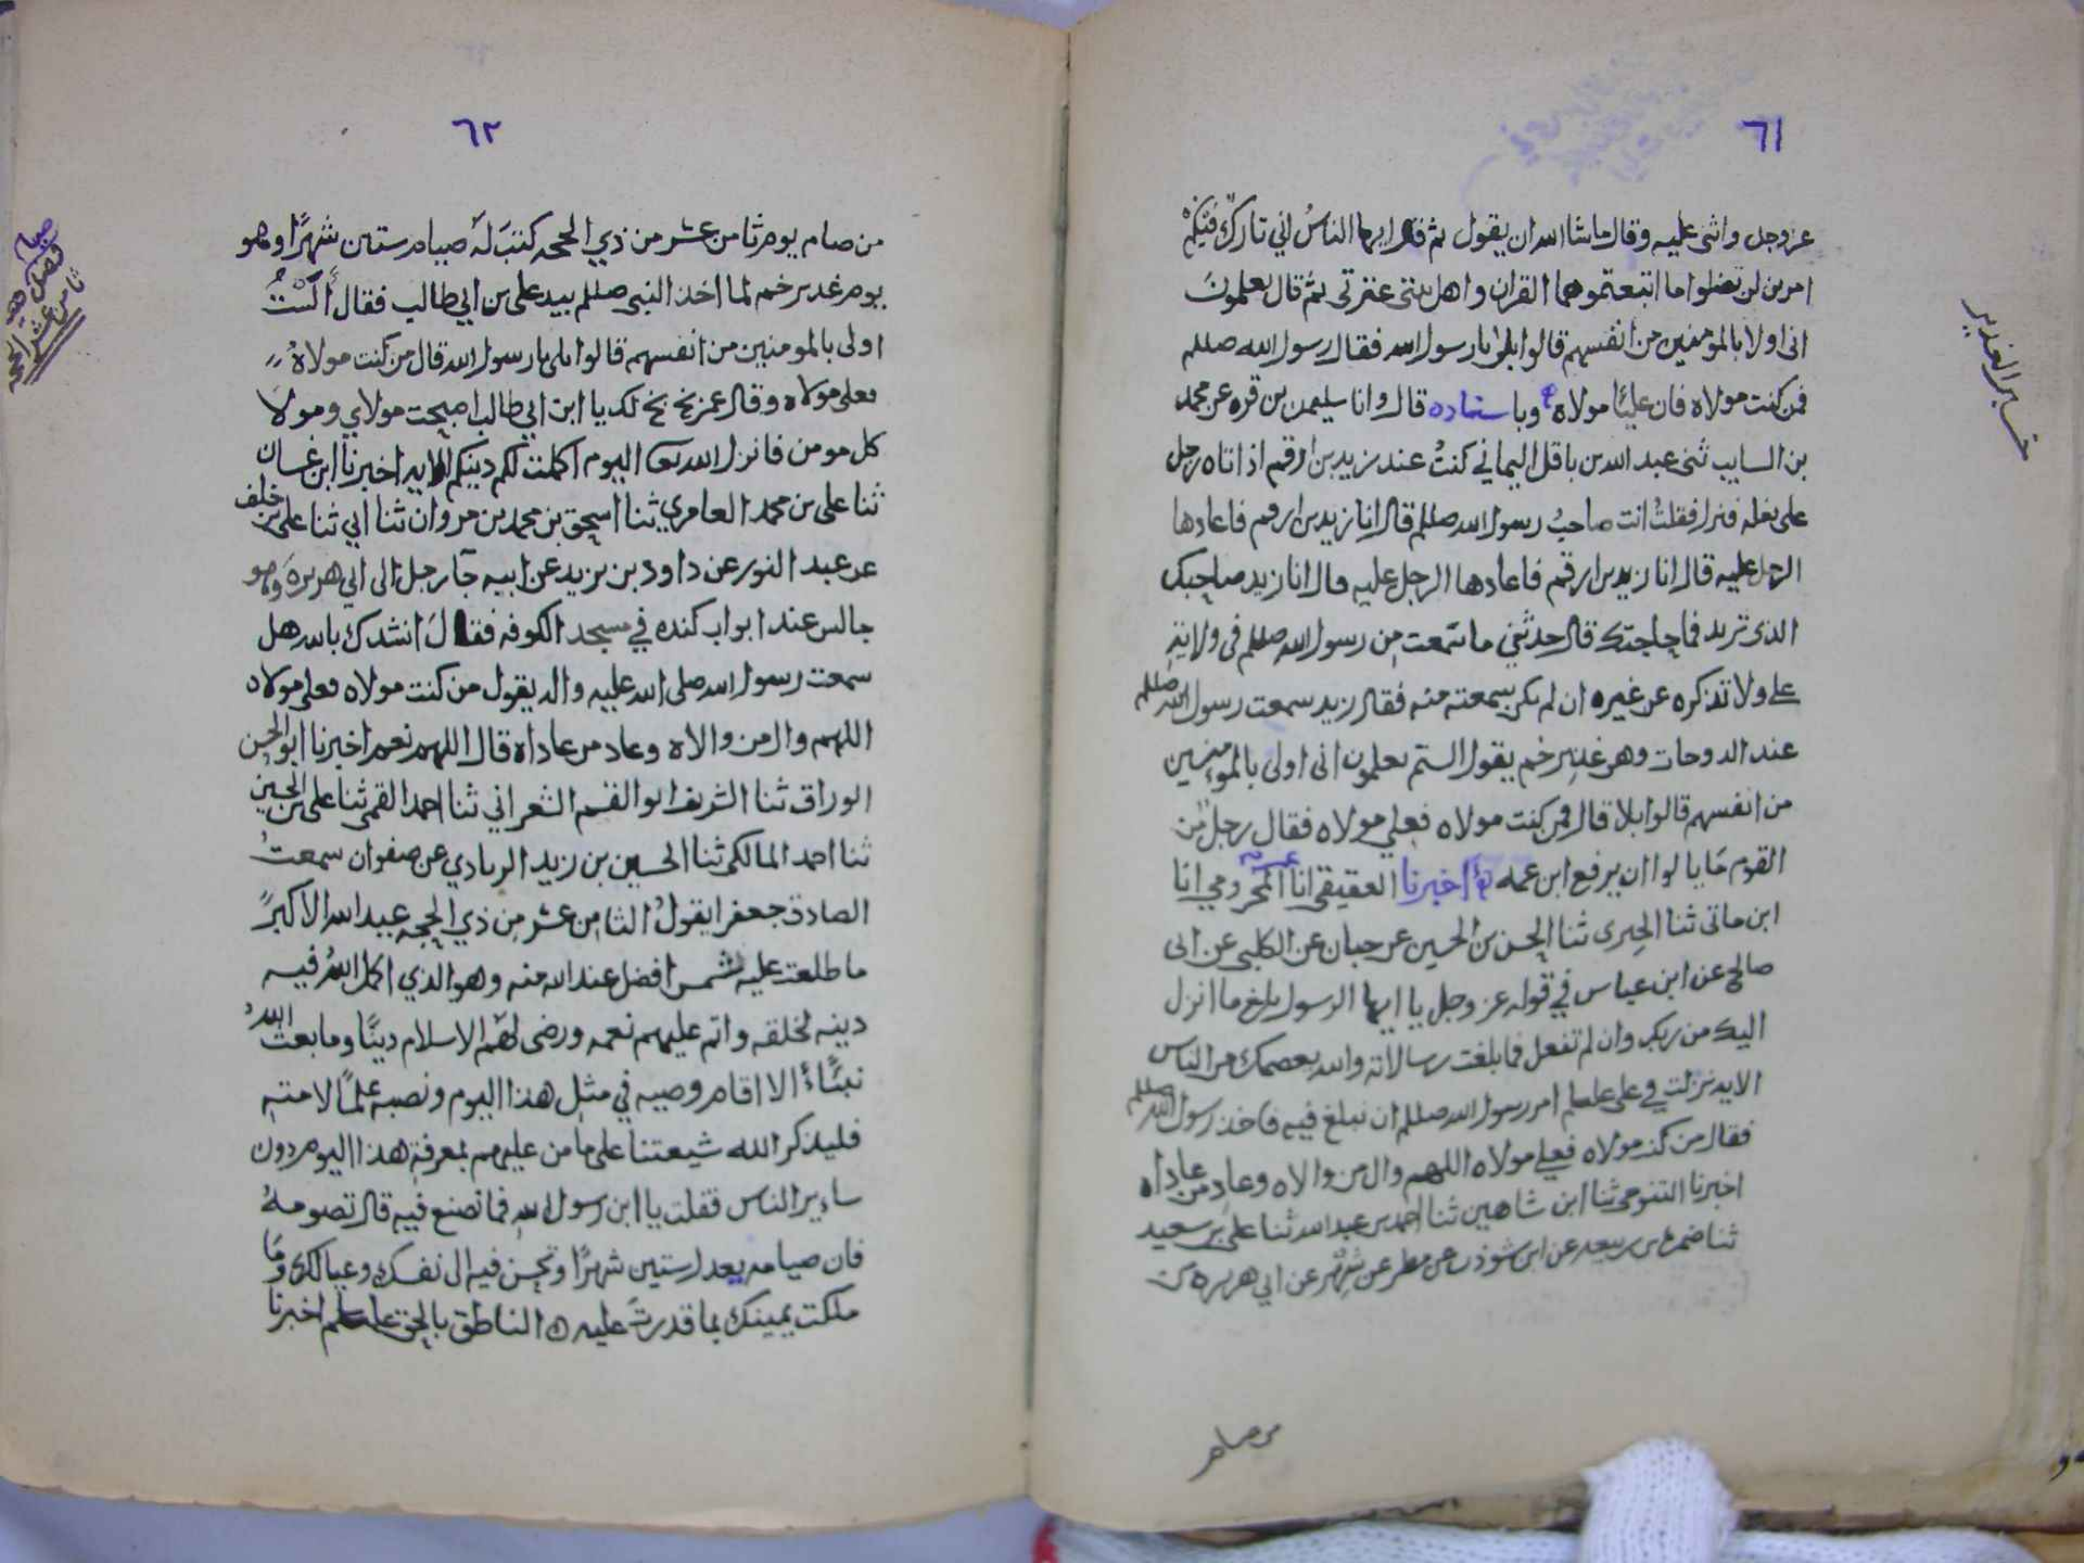 ٦١
عز وجل واثنى عليه وقال ماشا الله ان يقول ثم قال ايها الناسُ اني تاركٌ فيكم
امرين لن تضلوا ما اتبعتموهما القران واهل بيتى عترتى ثم قال تعلمون
انى اولا بالمومنين من انفسهم قالوا بلى يا رسول الله فقال رسول الله صللم
فمن كنت مولاه فان عليًا مولاه وباسناده قال وانا سليمن بن قره عن محمد
بن السايب ثنى عبد الله بن باقل اليماني كنتُ عند زيد بن ارقم اذ اتاه رجل
على بغله فنزل فقلتُ انت صاحبُ رسول الله صللم قال انا زيد بن ارقم فاعادها
الرجل عليه قال انا زيد بن ارقم فاعادها الرجل عليه قال انا زيد صاحبك
الذى تريد فما حاجتك قال حدثني ما سمعت من رسول الله صللم فى ولاية
على ولا تذكره عن غيره ان لم تكن سمعته منه فقال زيد سمعت رسول الله صللم
عند الدوحات وهو غدير خم يقول الستم تعلمون انى اولى بالمومنين
من انفسهم قالوا بلا قال فمن كنت مولاه فعلي مولاه فقال رجل من
القوم ما يالوا ان يرفع ابن عمه اخبرنا العقيقى انا المحرومي انا
ابن ماتى ثنا الحبرى ثنا الحسن بن الحسين عن حبان عن الكلبى عن ابى
صالح عن ابن عباس في قوله عز وجل يا ايها الرسول بلغ ما انزل
اليك من ربك وان لم تفعل فما بلغت رسالاته والله يعصمك من الناس
الايه نزلت في على علسلم امر رسول الله صللم ان يبلغ فيه فاخذ رسول الله صللم
فقال من كنت مولاه فعلي مولاه اللهم وال من والاه وعاد من عاداه
اخبرنا التنوخى ثنا ابن شاهين ثنا احمد بن عبد الله ثنا على بن سعيد
ثنا ضمره بن ربيعه عن ابن شوذب عن مطر عن شهر عن ابي هريره
من صام
خبر الغدير
٦٢
من صام يوم ثامن عشر من ذي الحجه كتبَ له صيام ستين شهرًا وهو
يوم غدير خم لما اخذ النبى صللم بيد على بن ابي طالب فقال ألستُ
اولى بالمومنين من انفسهم قالوا بلى يا رسول الله قال من كنت مولاهُ
فعلى مولاه وقال عمر بخ بخ لك يا ابن ابي طالب اصبحت مولاي ومولا
كل مومن فانزل الله تعا اليوم اكملت لكم دينكم الايه اخبرنا ابن غسان
ثنا على بن محمد العامري ثنا اسحق بن محمد بن مروان ثنا ابي ثنا على بن خلف
عن عبد النور عن داود بن يزيد عن ابيه جآ رجل الى ابي هريرة وهو
جالس عند ابواب كنده في مسجد الكوفه فقال انشدك بالله هل
سمعت رسول الله صلى الله عليه واله يقول من كنت مولاه فعلى مولاه
اللهم وال من والاه وعاد من عاداه قال اللهم نعم اخبرنا ابو الحسن
الوراق ثنا الشريف ابو القسم الشعراني ثنا احمد القمى ثنا على بن الحسين
ثنا احمد المالكى ثنا الحسين بن زيد الريادي عن صفوان سمعتُ
الصادق جعفرا يقولُ الثامن عشر من ذي الحجه عيد الله الاكبر
ما طلعت عليه شمس افضل عند الله منه وهو الذي اكمل اللهُ فيه
دينه لخلقه واتم عليهم نعمه ورضى لهم الاسلام دينًا وما بعث اللهُ
نبيًا الا اقام وصيه في مثل هذا اليوم ونصبه علمًا لامته
فليذكر الله شيعتنا على ما من عليهم بمعرفة هذا اليوم دون
ساير الناس فقلت يا ابن رسول الله فما نصنع فيه قال تصومهُ
فان صيامه يعدل ستين شهرًا وتحسن فيه الى نفسك وعيالك وما
ملكت يمينك بما قدرت عليه ه الناطق بالحق علسلم اخبرنا
صيام
ثامن عشر الحجه